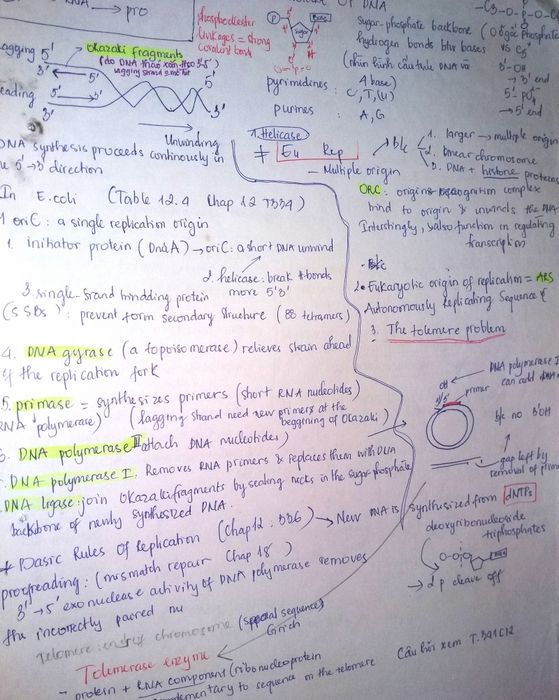 RNA → pro
phosphodiester
linkages = strong
covalent bond
P
Sugar
BASE
OF DNA
Sugar-phosphate backbone
hydrogen bonds btw bases
pyrimidines : 4 base
C, T, (U)
purines : A, G
C3 - O - P - O -
C5'
3'-OH
→ 3' end
5'-PO4
→ 5' end
lagging 5'
3'
okazaki fragments
5'
5'
leading 5'
3'
3'
Unwinding
DNA synthesis proceeds continously in
the 5' → 3' direction
1 Helicase
≠ Eu Rep
- Multiple origin
b/c
1. larger → multiple origin
2. linear chromosome
3. DNA + histone proteins
ORC: origins recognition complex
bind to origin & unwinds the DNA
Interestingly, also function in regulating
transcription
In E.coli (Table 12.4 Chap 12 T334)
1 oriC : a single replication origin
1. initiator protein (DnaA) → oriC: a short DNA unwind
2. helicase: break H bonds
more 5'3'
3. single-strand bindding protein
(SSBs): prevent form secondary structure (88 tetramers)
2. Eukaryotic origin of replication = ARS
Autonomously Replicating Sequence
3. The telomere problem
4. DNA gyrase (a topoisomerase) relieves strain ahead
of the replication fork
5. primase = synthesizes primers (short RNA nucleotides)
RNA polymerase) (lagging strand need new primers at the
beggining of Okazaki)
DNA polymerase III attach DNA nucleotides)
DNA polymerase I. Removes RNA primers & replaces them with DNA
DNA ligase: join Okazaki fragments by sealing nicks in the sugar-phosphate
backbone of newly synthesized DNA.
OH
DNA polymerase I
can add DNA
primer
5'
b/c no 3'OH
gap left by
removal of primer
* Basic Rules Of Replication (Chap 12. 336) → New DNA is synthesized from dNTPs
deoxyribonucleoside
triphosphates
→ 2 p cleave off
proofreading: (mismatch repair Chap 18)
3' → 5' exonuclease activity of DNA polymerase removes
the incorrectly paired nu
Telomere: ends of chromosome (special sequence)
G rich
Telomerase enzyme
- protein + RNA component (ribonucleoprotein
complementary to sequence in the telomere
Câu hỏi xem T.341C12